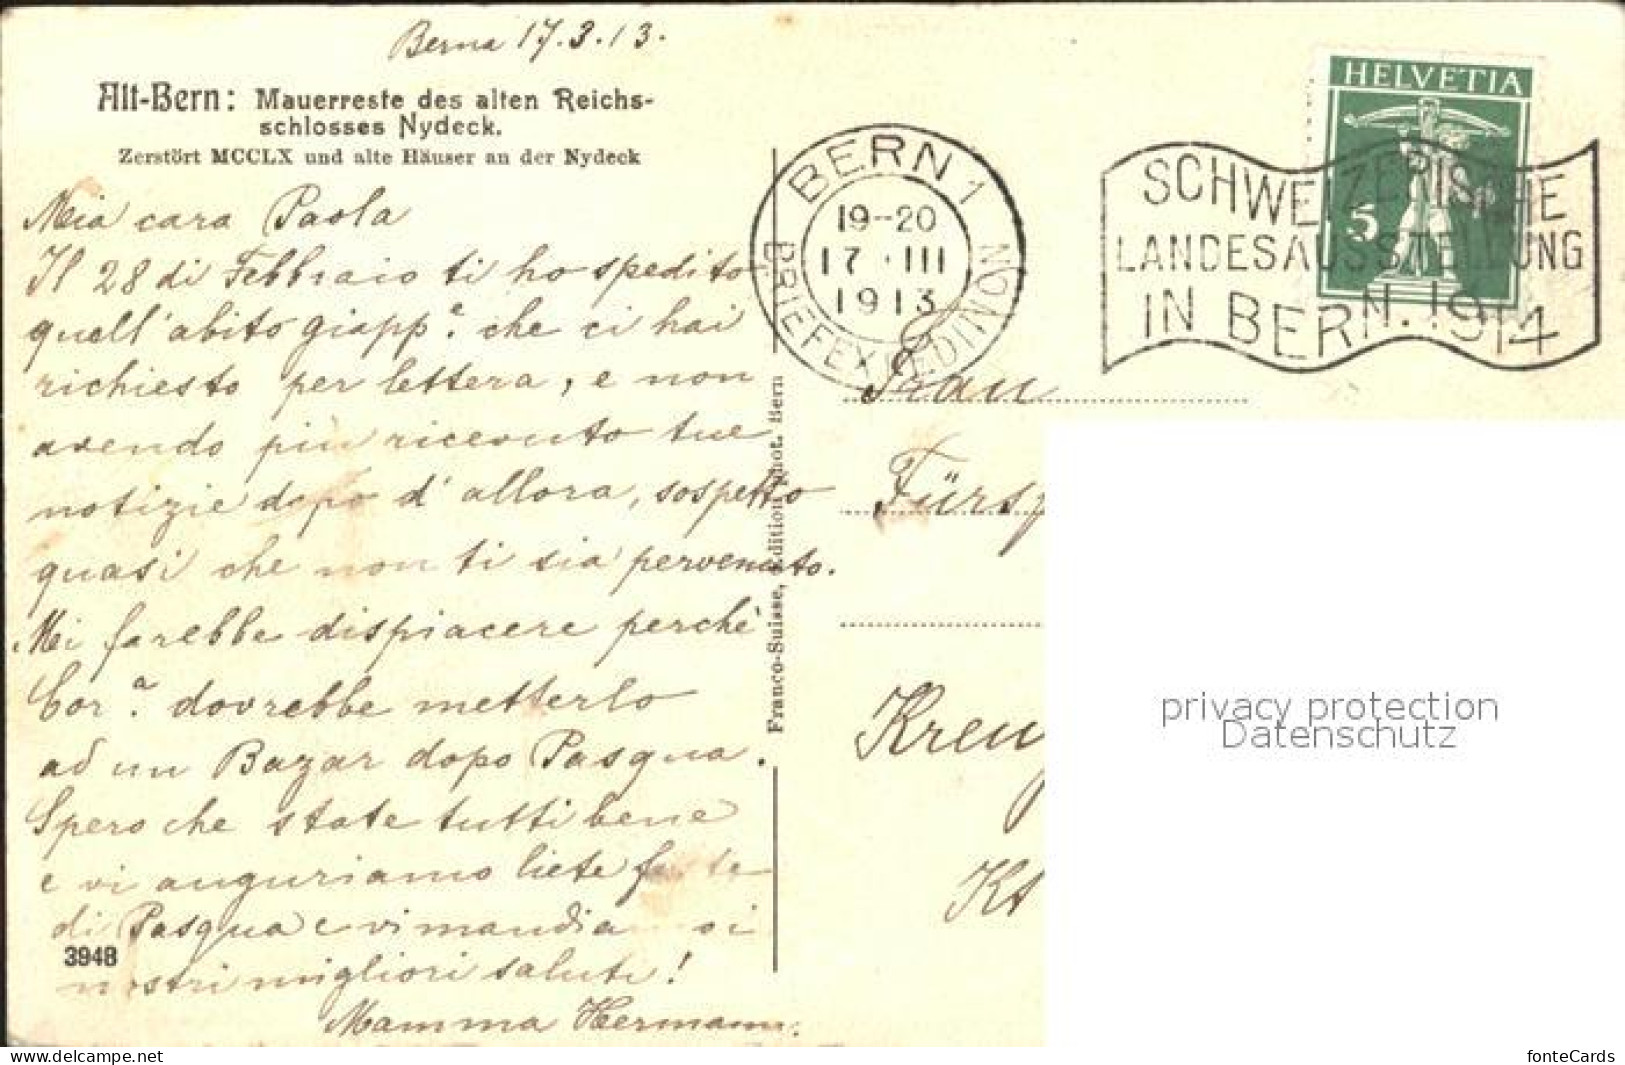 Berna 17.3.13.
Alt-Bern: Mauerreste des alten Reichs-
schlosses Nydeck.
Zerstört MCCLX und alte Häuser an der Nydeck
Mia cara Paola
Il 28 di Febbraio ti ho spedito
quell'abito giapp.e che ci hai
richiesto per lettera, e non
avendo più ricevuto tue
notizie dopo d'allora, sospetto
quasi che non ti sia pervenuto.
Mi farebbe dispiacere perchè
Cor.a dovrebbe metterlo
ad un Bazar dopo Pasqua.
Spero che state tutti bene
e vi auguriamo liete feste
di Pasqua e vi mandia oi
nostri migliori saluti!
Mamma Hermann.
3948
Franco-Suisse, Edition phot. Bern
BERN 1
19-20
17.III
1913
BRIEFEXPEDITION
HELVETIA
5
SCHWEIZERISCHE
LANDESAUSSTELLUNG
IN BERN. 1914
Frau
Fürsp
Kreuz
Kt
privacy protection
Datenschutz
www.delcampe.net
fonteCards